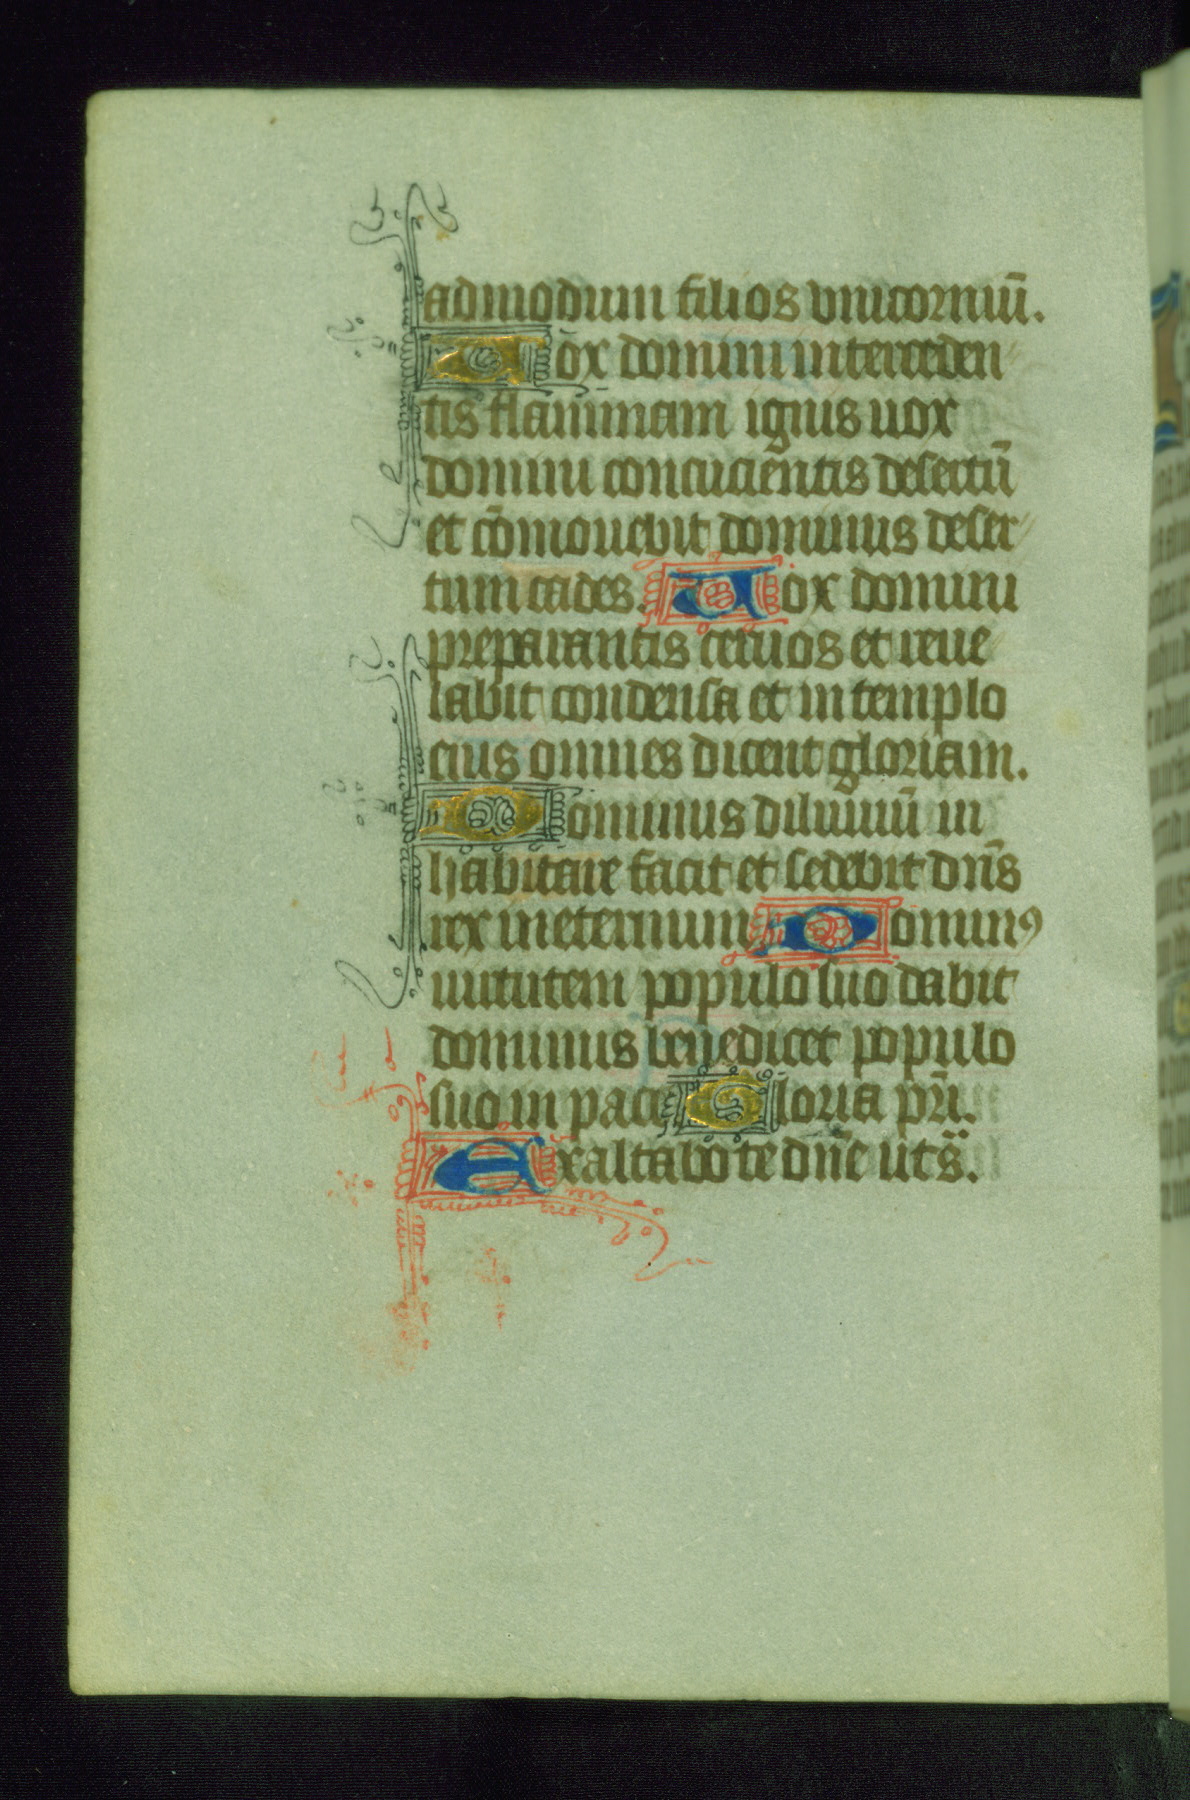 admodum filios vnicorniū.
Vox domini interceden
tis flammam ignis uox
domini concucientis desertū
et cōmouebit dominus deser
tum cades. Vox domini
preparantis ceruos et reue
labit condensa et in templo
eius omnes dicent gloriam.
Dominus diluuiū in
habitare facit et sedebit dn̄s
rex in eternum Dominꝯ
uirtutem populo suo dabit
dominus benedicet populo
suo in pace Gloria pr̄i.
Exaltabo te dn̄e ut s̄.